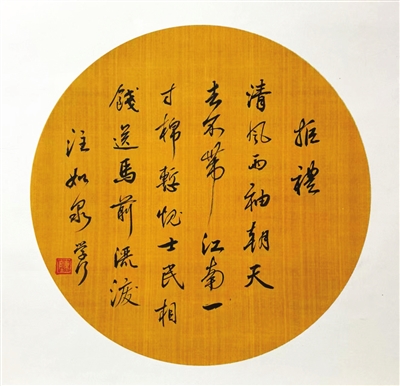 拒禮
清風兩袖朝天
去不帶江南一
寸棉慙愧士民相
餞送馬前淚
注如泉